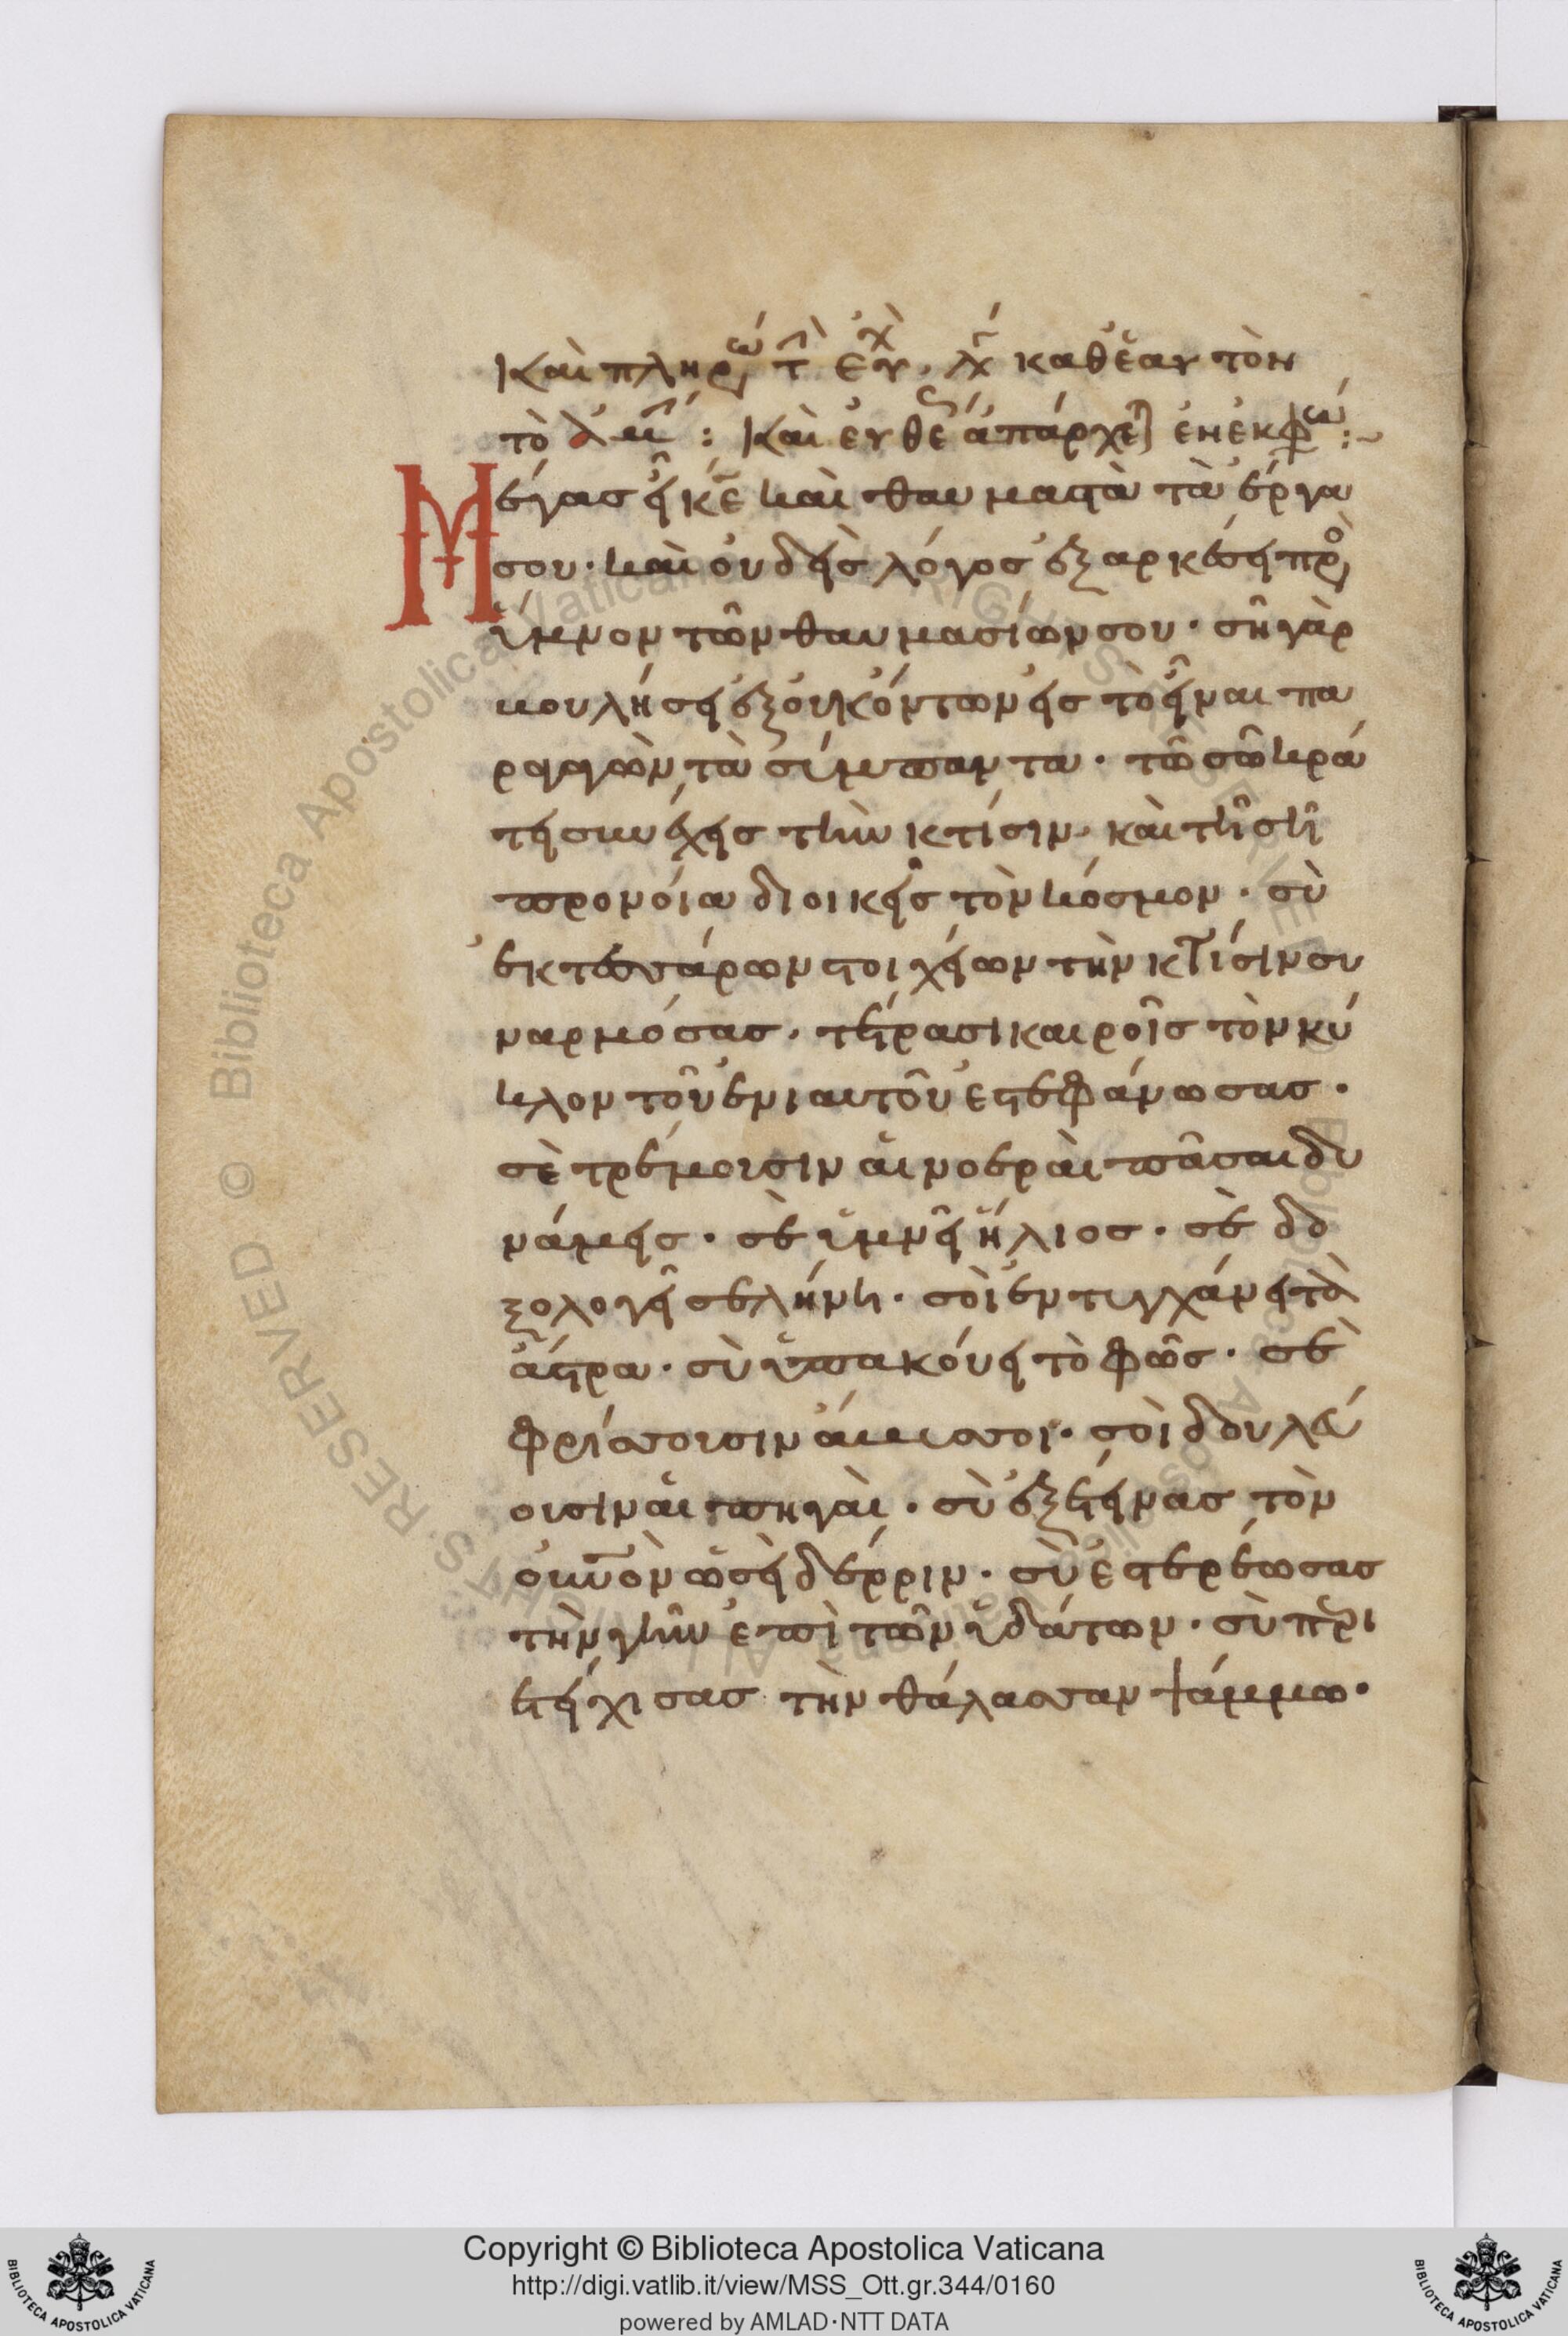 Καὶ πληρώ τ εὐχ. λέγ καθ ἑαυτὸν
τὸ ἀμ : Καὶ εὐθέ ἀπάρχε ἐν ἐκφώ :~
Μέγας εἶ κε καὶ θαυμαστὰ τὰ ἔργα
σου· καὶ οὐδεὶς λόγος ἐξαρκέσει πρὸ
ὕμνον τῶν θαυμασίων σου· σῆ γὰρ
βουλήσει ἐξ οὐκ ὄντων εἰς τὸ εἶναι πα
ραγαγὼν τὰ σύμπαντα· τῶ σῶ κρά
τει συνέχεις τὴν κτίσιν· καὶ τῆ σῆ
προνοία διοικεῖς τὸν κόσμον· σὺ
ἐκ τεσσάρων στοιχείων τὴν κτίσιν συ
ναρμόσας· τέτρασι καιροῖς τὸν κύ
κλον τοῦ ἐνιαυτοῦ ἐστεφάνωσας·
σὲ τρέμουσιν αἱ νοεραὶ πᾶσαι δυ
νάμεις· σὲ ὑμνεῖ ἥλιος· σὲ δο
ξολογεῖ σελήνη· σοὶ ἐντυγχάνει τὰ
ἄστρα· σὺ ὑπακούει τὸ φῶς· σὲ
φρίσσουσιν ἄβυσσοι· σοὶ δουλεύ
ουσιν αἱ πηγαὶ· σὺ ἐξέτεινας τὸν
οὐνὸν ὡσεὶ δέρριν· σὺ ἐστερέωσας
τὴν γῆν ἐπὶ τῶν ὑδάτων· σὺ περι
ετείχισας τὴν θάλασσαν ψάμμω·
Copyright © Biblioteca Apostolica Vaticana
http://digi.vatlib.it/view/MSS_Ott.gr.344/0160
powered by AMLAD·NTT DATA